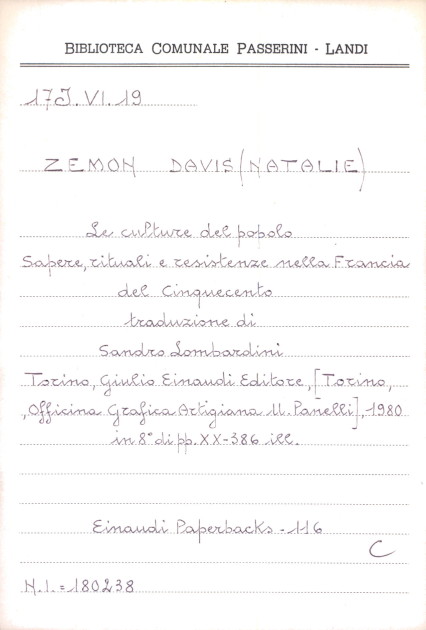 BIBLIOTECA COMUNALE PASSERINI - LANDI
17J.VI.19
ZEMON DAVIS (NATALIE)
Le culture del popolo
Sapere, rituali e resistenze nella Francia
del Cinquecento
traduzione di
Sandro Lombardini
Torino, Giulio Einaudi Editore, [Torino,
, Officina Grafica Artigiana U. Panelli], 1980
in 8° di pp. XX-386 ill.
Einaudi Paperbacks - 116
C
N.I. = 180238